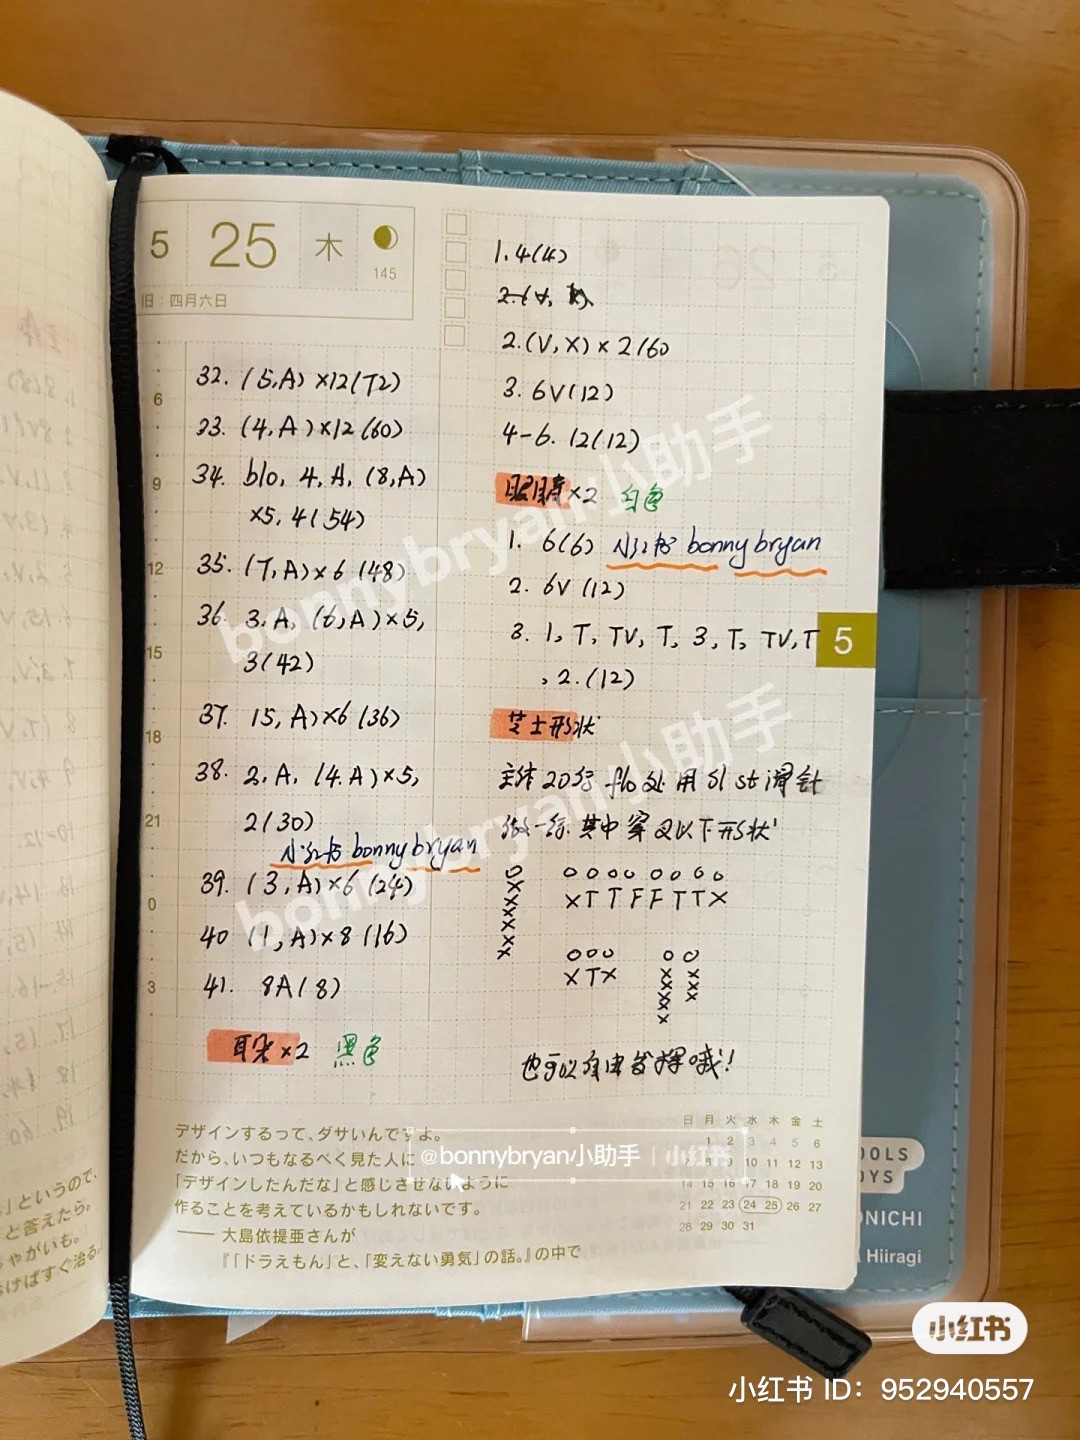 5 25 木
145
旧：四月六日
32. (5,A)×12(72)
33. (4,A)×12(60)
34. blo, 4, A, (8,A)
×5, 4(54)
35. (7,A)×6(48)
36. 3, A, (6,A)×5,
3(42)
37. (5,A)×6(36)
38. 2, A, (4.A)×5,
2(30)
小红书 bonnybryan
39. (3,A)×6(24)
40 (1,A)×8(16)
41. 8A(8)
耳朵×2 黑色
6
9
12
15
18
21
0
3
1. 4(4)
2.(V,X)×2(6)
3. 6V(12)
4-6. 12(12)
眼睛×2 白色
1. 6(6) 小红书 bonnybryan
2. 6V(12)
3. 1, T, TV, T, 3, T, TV, T
, 2.(12)
5
芝士形状
主体20行 flo处用sl st 滑针
做一行. 其中穿及以下形状
O OOOO OOOO
X XTTFFTTX
X
X
X
X
X
X
OOO O O
XTX X X
X X
X X
X
X
也可以自由发挥哦!
デザインするって、ダサいんですよ。
だから、いつもなるべく見た人に
「デザインしたんだな」と感じさせないように
作ることを考えているかもしれないです。
—— 大島依提亜さんが
『「ドラえもん」と、「変えない勇気」の話。』の中で
日 月 火 水 木 金 土
1 2 3 4 5 6
8 9 10 11 12 13
14 15 16 17 18 19 20
21 22 23 24 25 26 27
28 29 30 31
」というので、
と答えたら。
ゃがいも。
けばすぐ治る
OOLS
OYS
ONICHI
Hiiragi
bonnybryan小助手
bonnybryan小助手
@bonnybryan小助手 | 小红书
小红书
小红书 ID：952940557